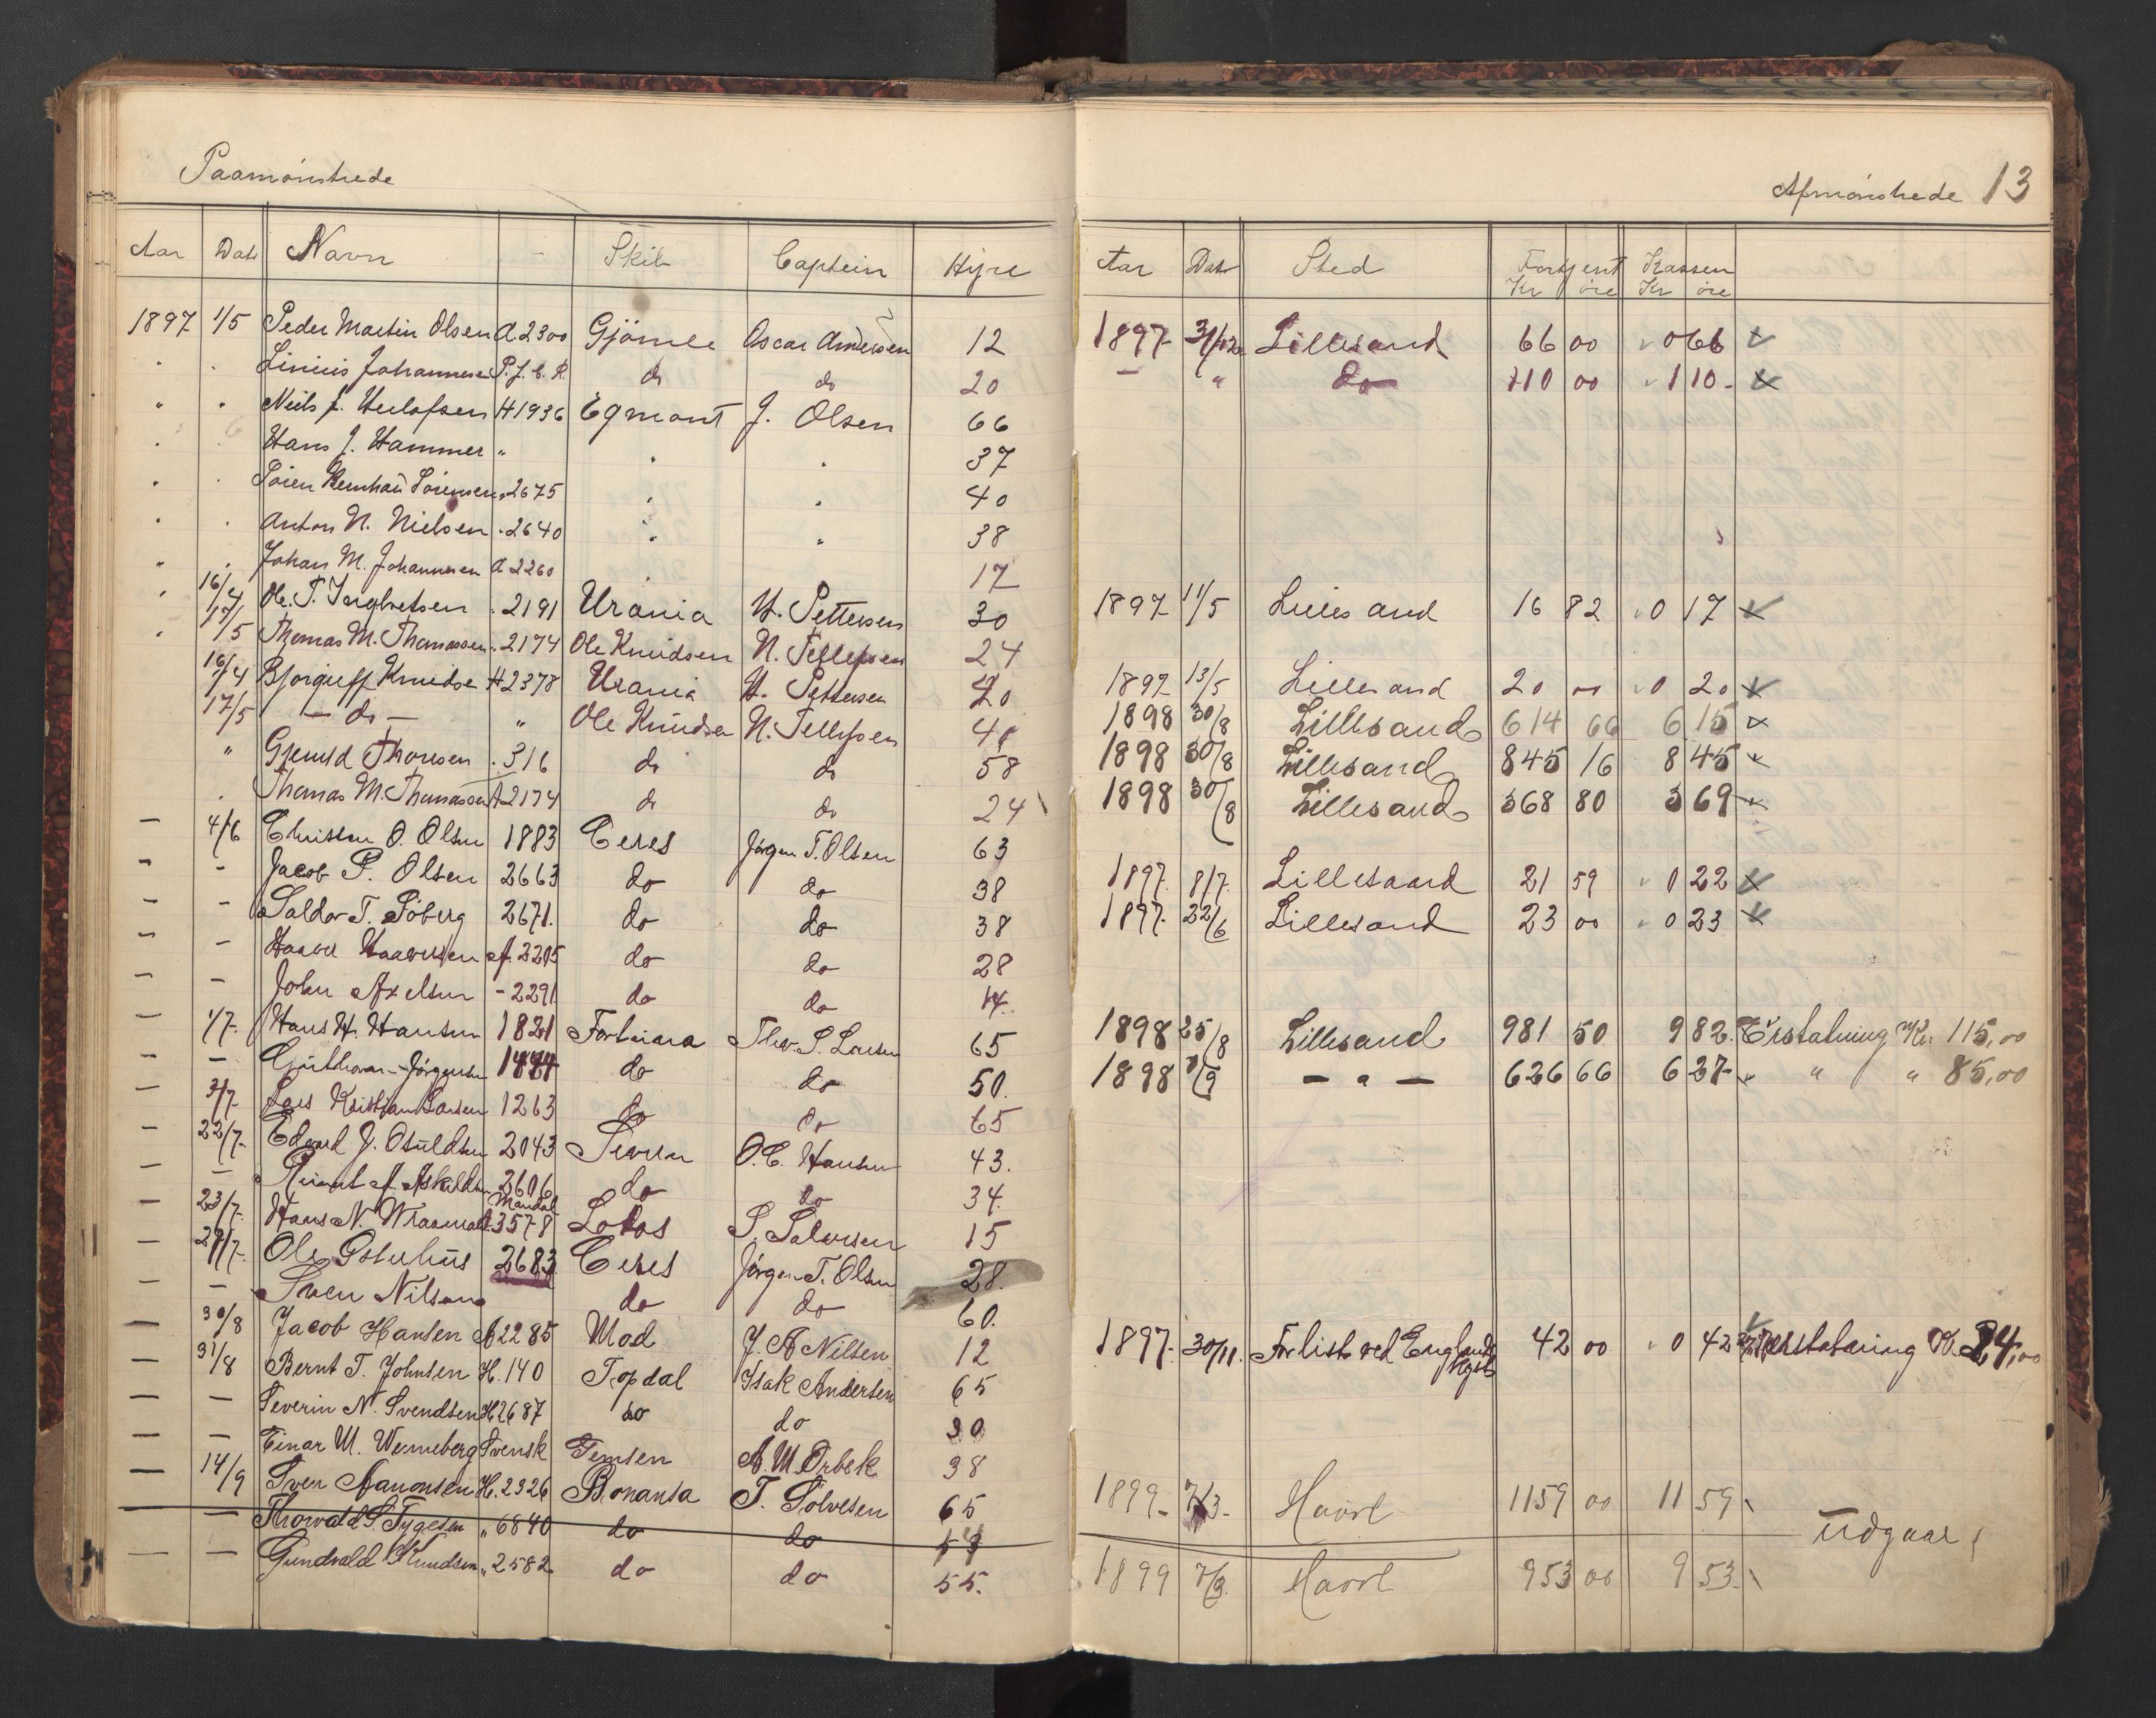 Paamønstrede
Aar Dato Navn - Skib Captein Hyre
1897 1/5 Peder Martin Olsen A 2300 Gjömle Oscar Andersen 12
" " Linius Johannesen P.J.C.R. do do 20
" " Niels J. Uelofsen H 1936 Egmont J. Olsen 66
" " Hans J. Hammer " " " 37
" " Sören Bernhard Sörensen " 2675 " " 40
" " Anton N. Nielsen " 2640 " " 38
" " Johan M. Johannesen A 2260 " 17
" 16/4 Ole T. Ingbretsen " 2191 Urania H. Pettersen 30
" 17/5 Thomas M. Thomassen " 2174 Ole Knudsen N. Tellefsen 24
16/4 Bjorgulf Knudse H 2378 Urania H. Pettersen 40
17/5 - do - " Ole Knudsen N. Tellefsen 40
" Gjeruld Thoresen " 316 do do 58
" Thomas M. Thomassen A 2174 do do 24
- 4/6 Christen O. Olsen 1883 Ceres Jörgen T. Olsen 63
- - Jacob P. Olsen 2663 do do 38
- - Salder T. Söberg 2671. do do 38
- - Haavel Haavelsen A. 2205 do do 28
- - John Axelsen - 2291 do do 14.
- 1/7. Hans H. Hansen 1821 Fortuna Thor. S. Larsen 65
- - Guttorm Jörgensen 1474 do do 50.
- 3/7. Lars Kristian Larsen 1263 do do 65
- 22/7. Edvard J. Osuldsen 2043 Severin O.C. Hansen 43.
- - A. Askildsen 2606 do do 34.
- 23/7. Hans N. Mandal 3578 Lotos S. Salvesen 15
- 29/7. Ole Osterhus 2683 Ceres Jörgen T. Olsen 28.
- - Sven Nilsen do do 60.
- 30/8 Jacob Hansen A 2285 Mod J. A Nilsen 12
- 31/8 Bernt T. Johnsen H. 140 Topdal Isak Andersen 65
- - Severin N. Svendsen H 2687 do do 30
- - Einar M. Wenneberg Svensk Gemsen A. M. Orbek 38
- 14/9 Sven Aanonsen H. 2326 Bonansa T. Solvesen 65
- Thorvald S. Tygesen " 6840 do do
- - Gundvald Knudsen " 2582 do do 55.
Afmønstrede 13
Aar Dato Sted Fortjent Kassen
Kr øre Kr øre
1897 31/12 Lillesand 66 00 0 66
- " do 110 00 1 10 -
1897 11/5 Lillesand 16 82 0 17
1897 13/5 Lillesand 20 00 0 20
1898 30/8 Lillesand 614 66 6 15
1898 30/8 Lillesand 845 16 8 45
1898 30/8 Lillesand 368 80 3 69
1897. 8/7. Lillesand 21 59 0 22
1897. 22/6 Lillesand 23 00 0 23
1898 25/8 Lillesand 981 50 9 82. Erstatning Kr. 115,00
1898 /9 - " - 636 66 6 37 - " " " 85,00
1897. 30/11. Forlist ved Englands Kyst 42 00 0 42 Erstatning Kr. 24,00
1899 - 7/3 - Havre 1159 00 11 59
udgaar
1899 7/3. Havre 953 00 9 53.